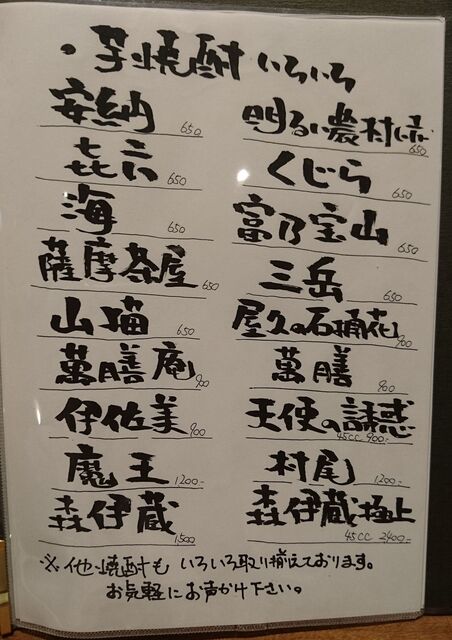 ・芋焼酎 いろいろ
安納 650
明るい農村 赤 650
㐂六 650
くじら 650
海 650
富乃宝山 650
薩摩茶屋 650
三岳 650
山猫 650
屋久の石楠花 900
萬膳庵 900
萬膳 900
伊佐美 900
天使の誘惑 45cc 900-
魔王 1200-
村尾 1200-
森伊蔵 1,500
森伊蔵極上 45cc 2,400-
※他焼酎も いろいろ取り揃えております。
お気軽にお声かけ下さい。